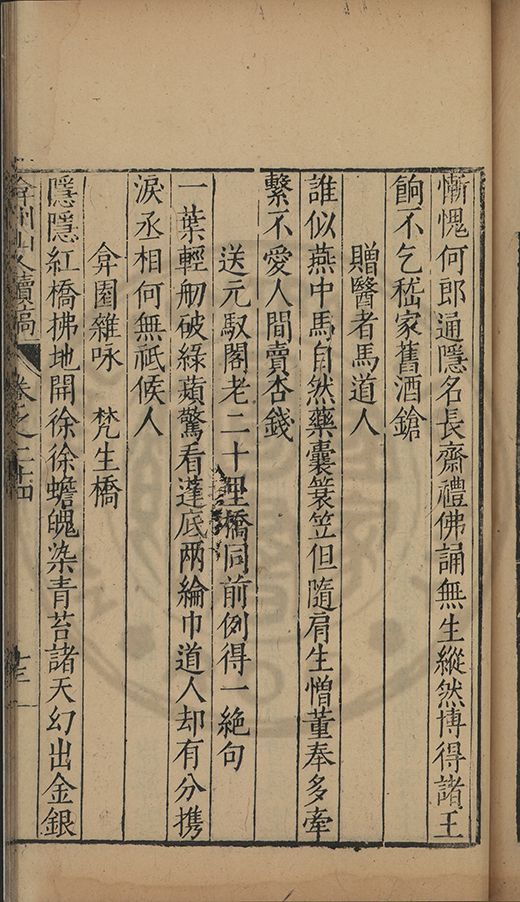 慚愧何郎通隱名長齋禮佛誦無生縱然博得諸王
餉不乞嵇家舊酒鎗
贈醫者馬道人
誰似燕中馬自然藥囊簑笠但隨肩生憎董奉多牽
繫不愛人間賣杏錢
送元馭閣老二十里橋同前例得一絶句
一葉輕舠破綠蘋驚看蓬底兩綸巾道人却有分携
淚丞相何無祗候人
弇園雜咏 梵生橋
隱隱紅橋拂地開徐徐蟾魄染青苔諸天幻出金銀
弇州山人續稿 卷之二十四